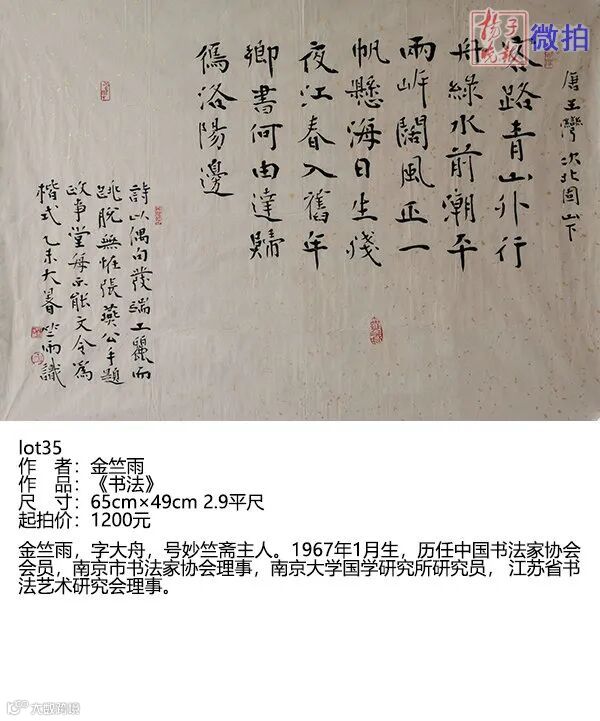 扬子晚报
微拍
唐王灣 次北固山下
客路青山外行
舟綠水前潮平
兩岸闊風正一
帆懸海日生殘
夜江春入舊年
鄉書何由達歸
鴈洛陽邊
詩以偶句發端工麗而
跳脫無恠張燕公手題
政事堂每示能文令為
楷式乙未大暑竺雨識
lot35
作 者：金竺雨
作 品：《书法》
尺 寸：65cm×49cm 2.9平尺
起拍价：1200元
金竺雨，字大舟，号妙竺斋主人。1967年1月生，历任中国书法家协会
会员，南京市书法家协会理事，南京大学国学研究所研究员， 江苏省书
法艺术研究会理事。